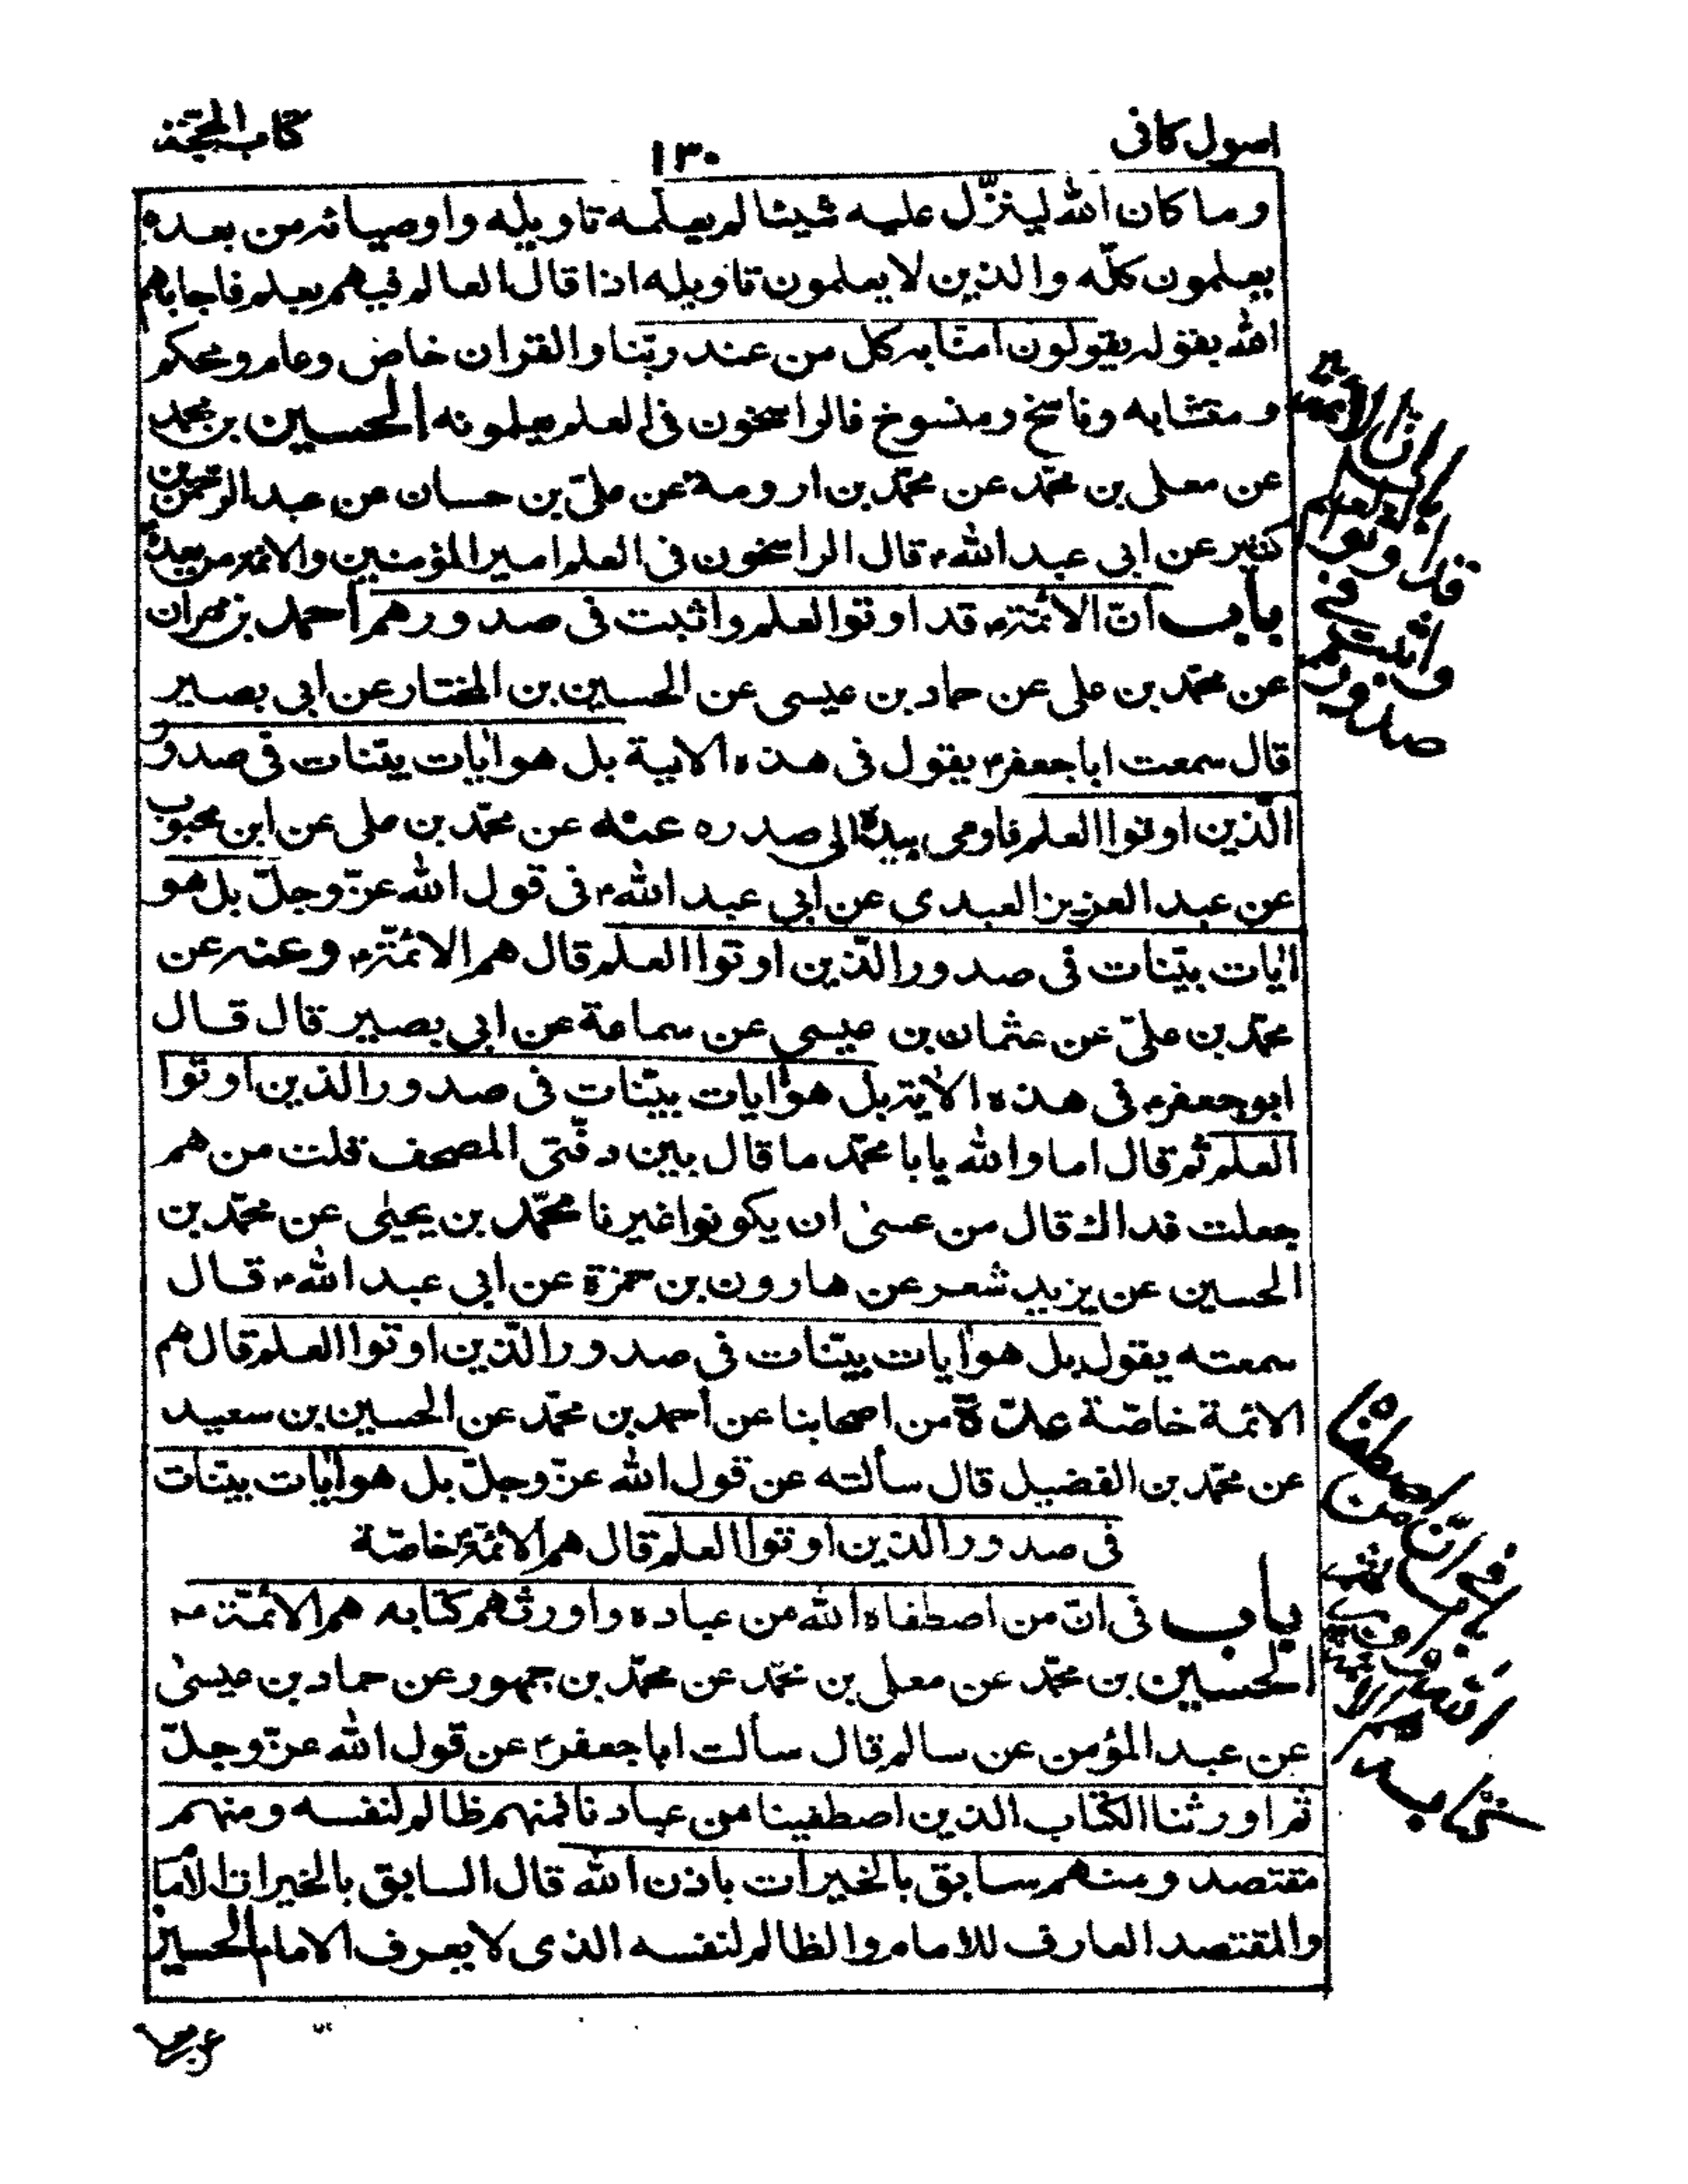 اصول كافى
١٣٠
كتاب الحجة
وما كان الله لينزّل عليه شيئا لم يعلمه تاويله واوصيائه من بعده
يعلمون كلّه والذين لا يعلمون تاويله اذا قال العالم فيهم بعلم فاجابهم
الله بقوله يقولون امنّا به كل من عند ربّنا والقران خاص وعام ومحكم
ومتشابه وناسخ ومنسوخ فالراسخون فى العلم يعلمونه الحسين بن محمد
عن معلى بن محمّد عن محمّد بن ارومة عن علىّ بن حسان عن عبد الرحمن بن
كثير عن ابى عبد الله ع قال الراسخون فى العلم امير المؤمنين والائمة من بعده
باب انّ الائمّة ع قد اوتوا العلم واثبت فى صدورهم احمد بن مهران
عن محمّد بن على عن حماد بن عيسى عن الحسين بن المختار عن ابى بصير
قال سمعت ابا جعفر ع يقول فى هذه الاية بل هو ايات بيّنات فى صدور
الّذين اوتوا العلم فاومى بيده الى صدره عنه عن محمّد بن على عن ابن محبوب
عن عبد العزيز العبدى عن ابى عبد الله ع فى قول الله عزّ وجلّ بل هو
ايات بيّنات فى صدور الّذين اوتوا العلم قال هم الائمّة ع وعنه عن
محمّد بن علىّ عن عثمان بن عيسى عن سماعة عن ابى بصير قال قال
ابو جعفر ع فى هذه الاية بل هو ايات بيّنات فى صدور الذين اوتوا
العلم ثم قال اما والله يا با محمّد ما قال بين دفّتى المصحف قلت من هم
جعلت فداك قال من عسى ان يكونوا غيرنا محمّد بن يحيى عن محمّد بن
الحسين عن يزيد شعر عن هارون بن حمزة عن ابى عبد الله ع قال
سمعته يقول بل هو ايات بيّنات فى صدور الّذين اوتوا العلم قال هم
الائمة خاصّة عدّة من اصحابنا عن احمد بن محمّد عن الحسين بن سعيد
عن محمّد بن الفضيل قال سألته عن قول الله عزّ وجلّ بل هو ايات بيّنات
فى صدور الّذين اوتوا العلم قال هم الائمّة ع خاصّة
باب فى انّ من اصطفاه الله من عباده واورثهم كتابه هم الائمّة ع
الحسين بن محمّد عن معلى بن محمّد عن محمّد بن جمهور عن حماد بن عيسى
عن عبد المؤمن عن سالم قال سألت ابا جعفر ع عن قول الله عزّ وجلّ
ثم اورثنا الكتاب الذين اصطفينا من عبادنا فمنهم ظالم لنفسه ومنهم
مقتصد ومنهم سابق بالخيرات باذن الله قال السابق بالخيرات الامام
والمقتصد العارف للامام والظالم لنفسه الذى لا يعرف الامام الحسين
باب ان الائمة
قد اوتوا العلم
واثبت فى
صدورهم